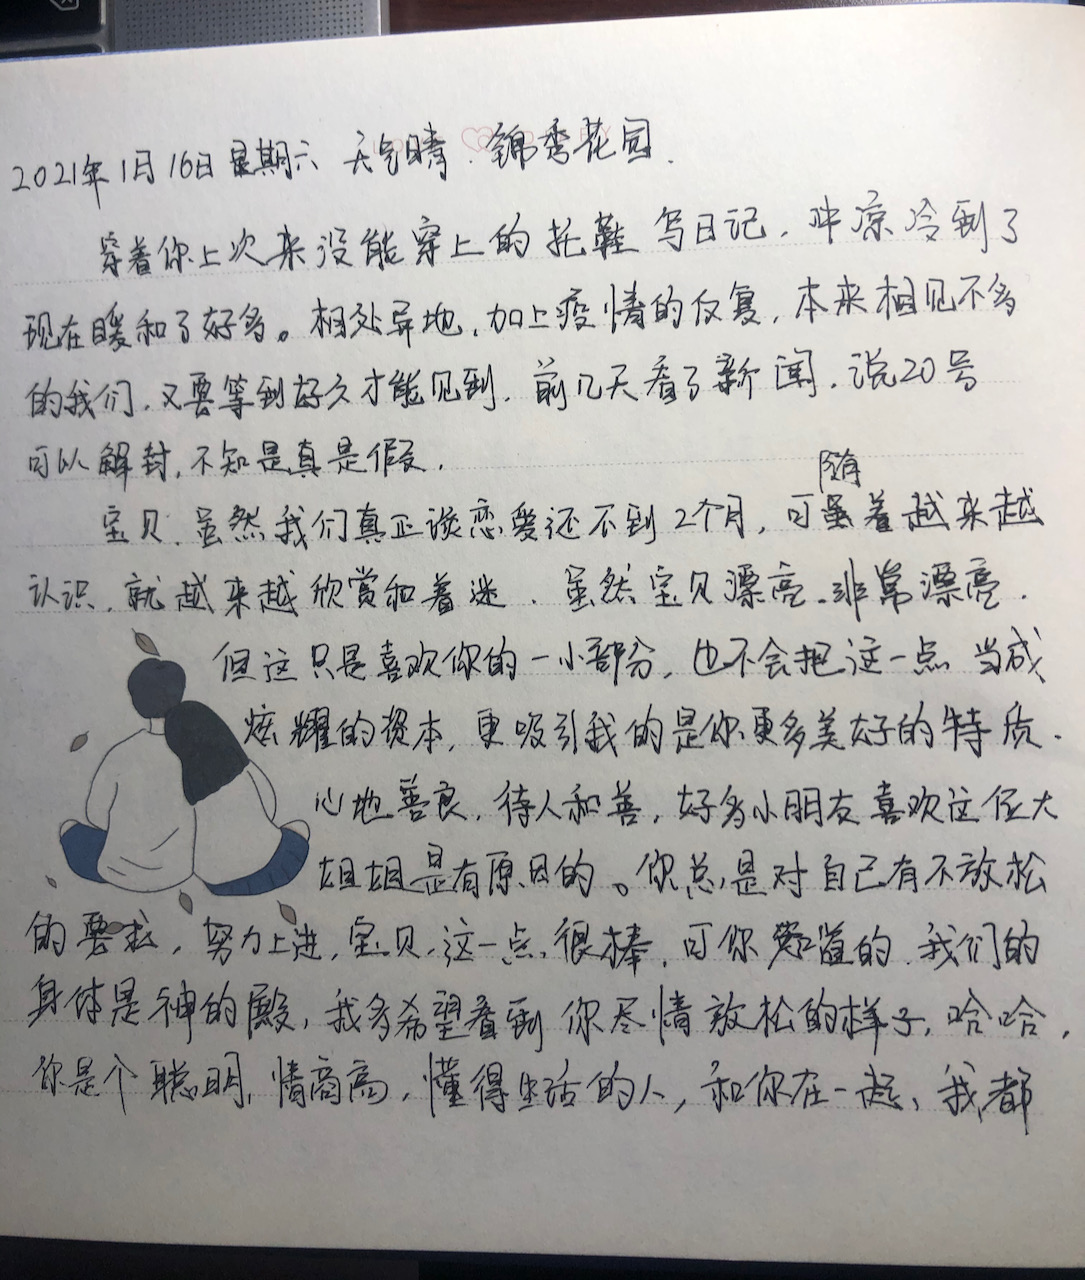 2021年1月16日 星期六 天气晴. 锦秀花园.
穿着你上次来没能穿上的拖鞋写日记. 冲凉冷到了
现在暖和了好多。相处异地, 加上疫情的反复, 本来相见不多
的我们, 又要等到好久才能见到. 前几天看了新闻, 说20号
可以解封, 不知是真是假.
宝贝, 虽然我们真正谈恋爱还不到2个月, 可随着越来越
认识, 就越来越欣赏和着迷. 虽然宝贝漂亮. 非常漂亮.
但这只是喜欢你的一小部分, 也不会把这一点当成
炫耀的资本, 更吸引我的是你更多美好的特质.
心地善良, 待人和善, 好多小朋友喜欢这位大
姐姐是有原因的。你总是对自己有不放松
的要求, 努力上进, 宝贝, 这一点很棒, 可你知道的, 我们的
身体是神的殿, 我多希望看到你尽情放松的样子, 哈哈,
你是个聪明, 情商高, 懂得生活的人, 和你在一起, 我都